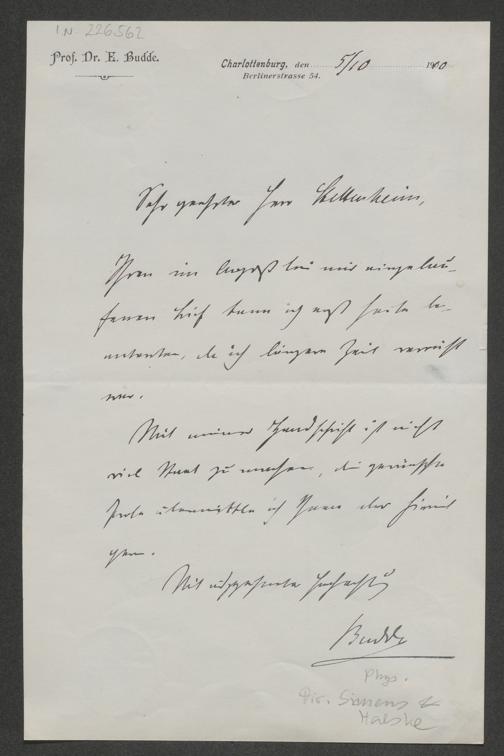 IN 226562
Prof. Dr. E. Budde.
Charlottenburg, den 5/10 1900
Berlinerstrasse 54.
Sehr geehrter Herr Stettenheim,
Ihren im August bei mir eingelau-
fenen Brief kann ich erst heute be-
antworten, da ich längere Zeit verreist
war.
Mit meiner Handschrift ist nicht
viel Staat zu machen, die gewünschte
Probe übermittle ich Ihnen aber hiermit
gern.
Mit Hochachtung
Budde
Phys.
Dir. Siemens &
Halske